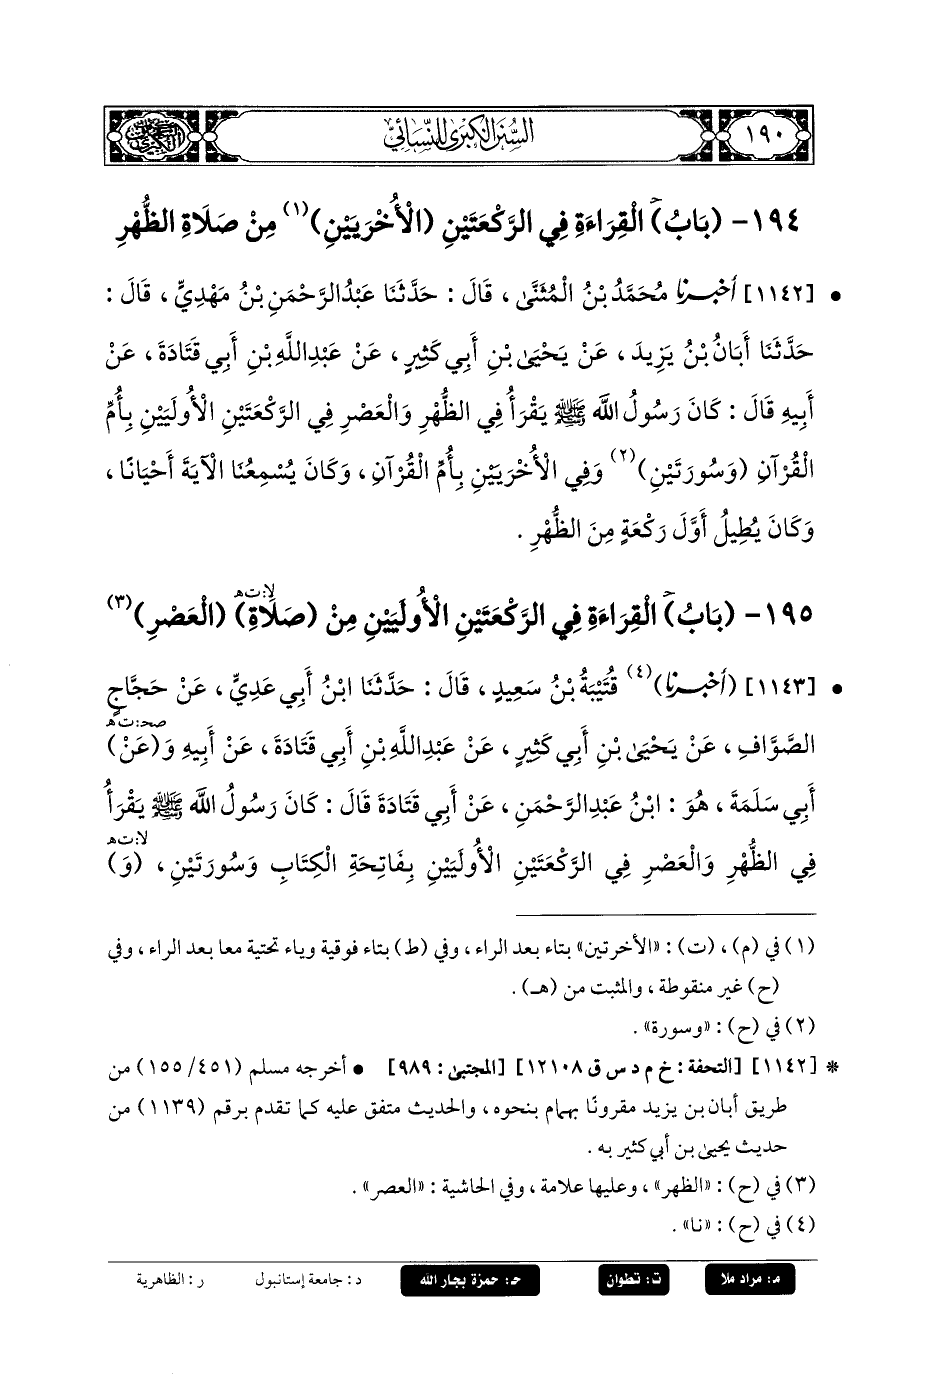 ١٩٠
السُّنَنُ الكبرى للنَّسَائي
١٩٤- (بَابُ) الْقِرَاءَةِ فِي الرَّكْعَتَيْنِ (الْأُخْرَيَيْنِ)(١) مِنْ صَلَاةِ الظُّهْرِ
• [١١٤٢] أَخْبَرَنَا مُحَمَّدُ بْنُ الْمُثَنَّى، قَالَ: حَدَّثَنَا عَبْدُ الرَّحْمَنِ بْنُ مَهْدِيٍّ، قَالَ:
حَدَّثَنَا أَبَانُ بْنُ يَزِيدَ، عَنْ يَحْيَىٰ بْنِ أَبِي كَثِيرٍ، عَنْ عَبْدِاللَّهِ بْنِ أَبِي قَتَادَةَ، عَنْ
أَبِيهِ قَالَ: كَانَ رَسُولُ اللَّه ﷺ يَقْرَأُ فِي الظُّهْرِ وَالْعَصْرِ فِي الرَّكْعَتَيْنِ الْأُولَيَيْنِ بِأُمِّ
الْقُرْآنِ (وَسُورَتَيْنِ)(٢) وَفِي الْأُخْرَيَيْنِ بِأُمِّ الْقُرْآنِ، وَكَانَ يُسْمِعُنَا الْآيَةَ أَحْيَانًا،
وَكَانَ يُطِيلُ أَوَّلَ رَكْعَةٍ مِنَ الظُّهْرِ.
لا: ت هـ
١٩٥- (بَابُ) الْقِرَاءَةِ فِي الرَّكْعَتَيْنِ الْأُولَيَيْنِ مِنْ (صَلَاةِ) (الْعَصْرِ)(٣)
• [١١٤٣] (أَخْبَرَنَا)(٤) قُتَيْبَةُ بْنُ سَعِيدٍ، قَالَ: حَدَّثَنَا ابْنُ أَبِي عَدِيٍّ، عَنْ حَجَّاجٍ
صحـ: ت هـ
الصَّوَّافِ، عَنْ يَحْيَىٰ بْنِ أَبِي كَثِيرٍ، عَنْ عَبْدِاللَّهِ بْنِ أَبِي قَتَادَةَ، عَنْ أَبِيهِ وَ(عَنْ)
أَبِي سَلَمَةَ، هُوَ: ابْنُ عَبْدِالرَّحْمَنِ، عَنْ أَبِي قَتَادَةَ قَالَ: كَانَ رَسُولُ اللَّه ﷺ يَقْرَأُ
لا: ت هـ
فِي الظُّهْرِ وَالْعَصْرِ فِي الرَّكْعَتَيْنِ الْأُولَيَيْنِ بِفَاتِحَةِ الْكِتَابِ وَسُورَتَيْنِ، (وَ)
(١) في (م)، (ت): «الأخرتين» بتاء بعد الراء، وفي (ط) بتاء فوقية وياء تحتية معا بعد الراء، وفي
(ح) غير منقوطة، والمثبت من (هـ).
(٢) في (ح): «وسورة».
* [١١٤٢] [التحفة: خ م د س ق ١٢١٠٨] [المجتبى: ٩٨٩] • أخرجه مسلم (٤٥١/ ١٥٥) من
طريق أبان بن يزيد مقرونًا بهمام بنحوه، والحديث متفق عليه كما تقدم برقم (١١٣٩) من
حديث يحيىٰ بن أبي كثير به.
(٣) في (ح): «الظهر»، وعليها علامة، وفي الحاشية: «العصر».
(٤) في (ح): «نا».
م: مراد ملا ت: تطوان حـ: حمزة بجار الله د: جامعة إستانبول ر: الظاهرية